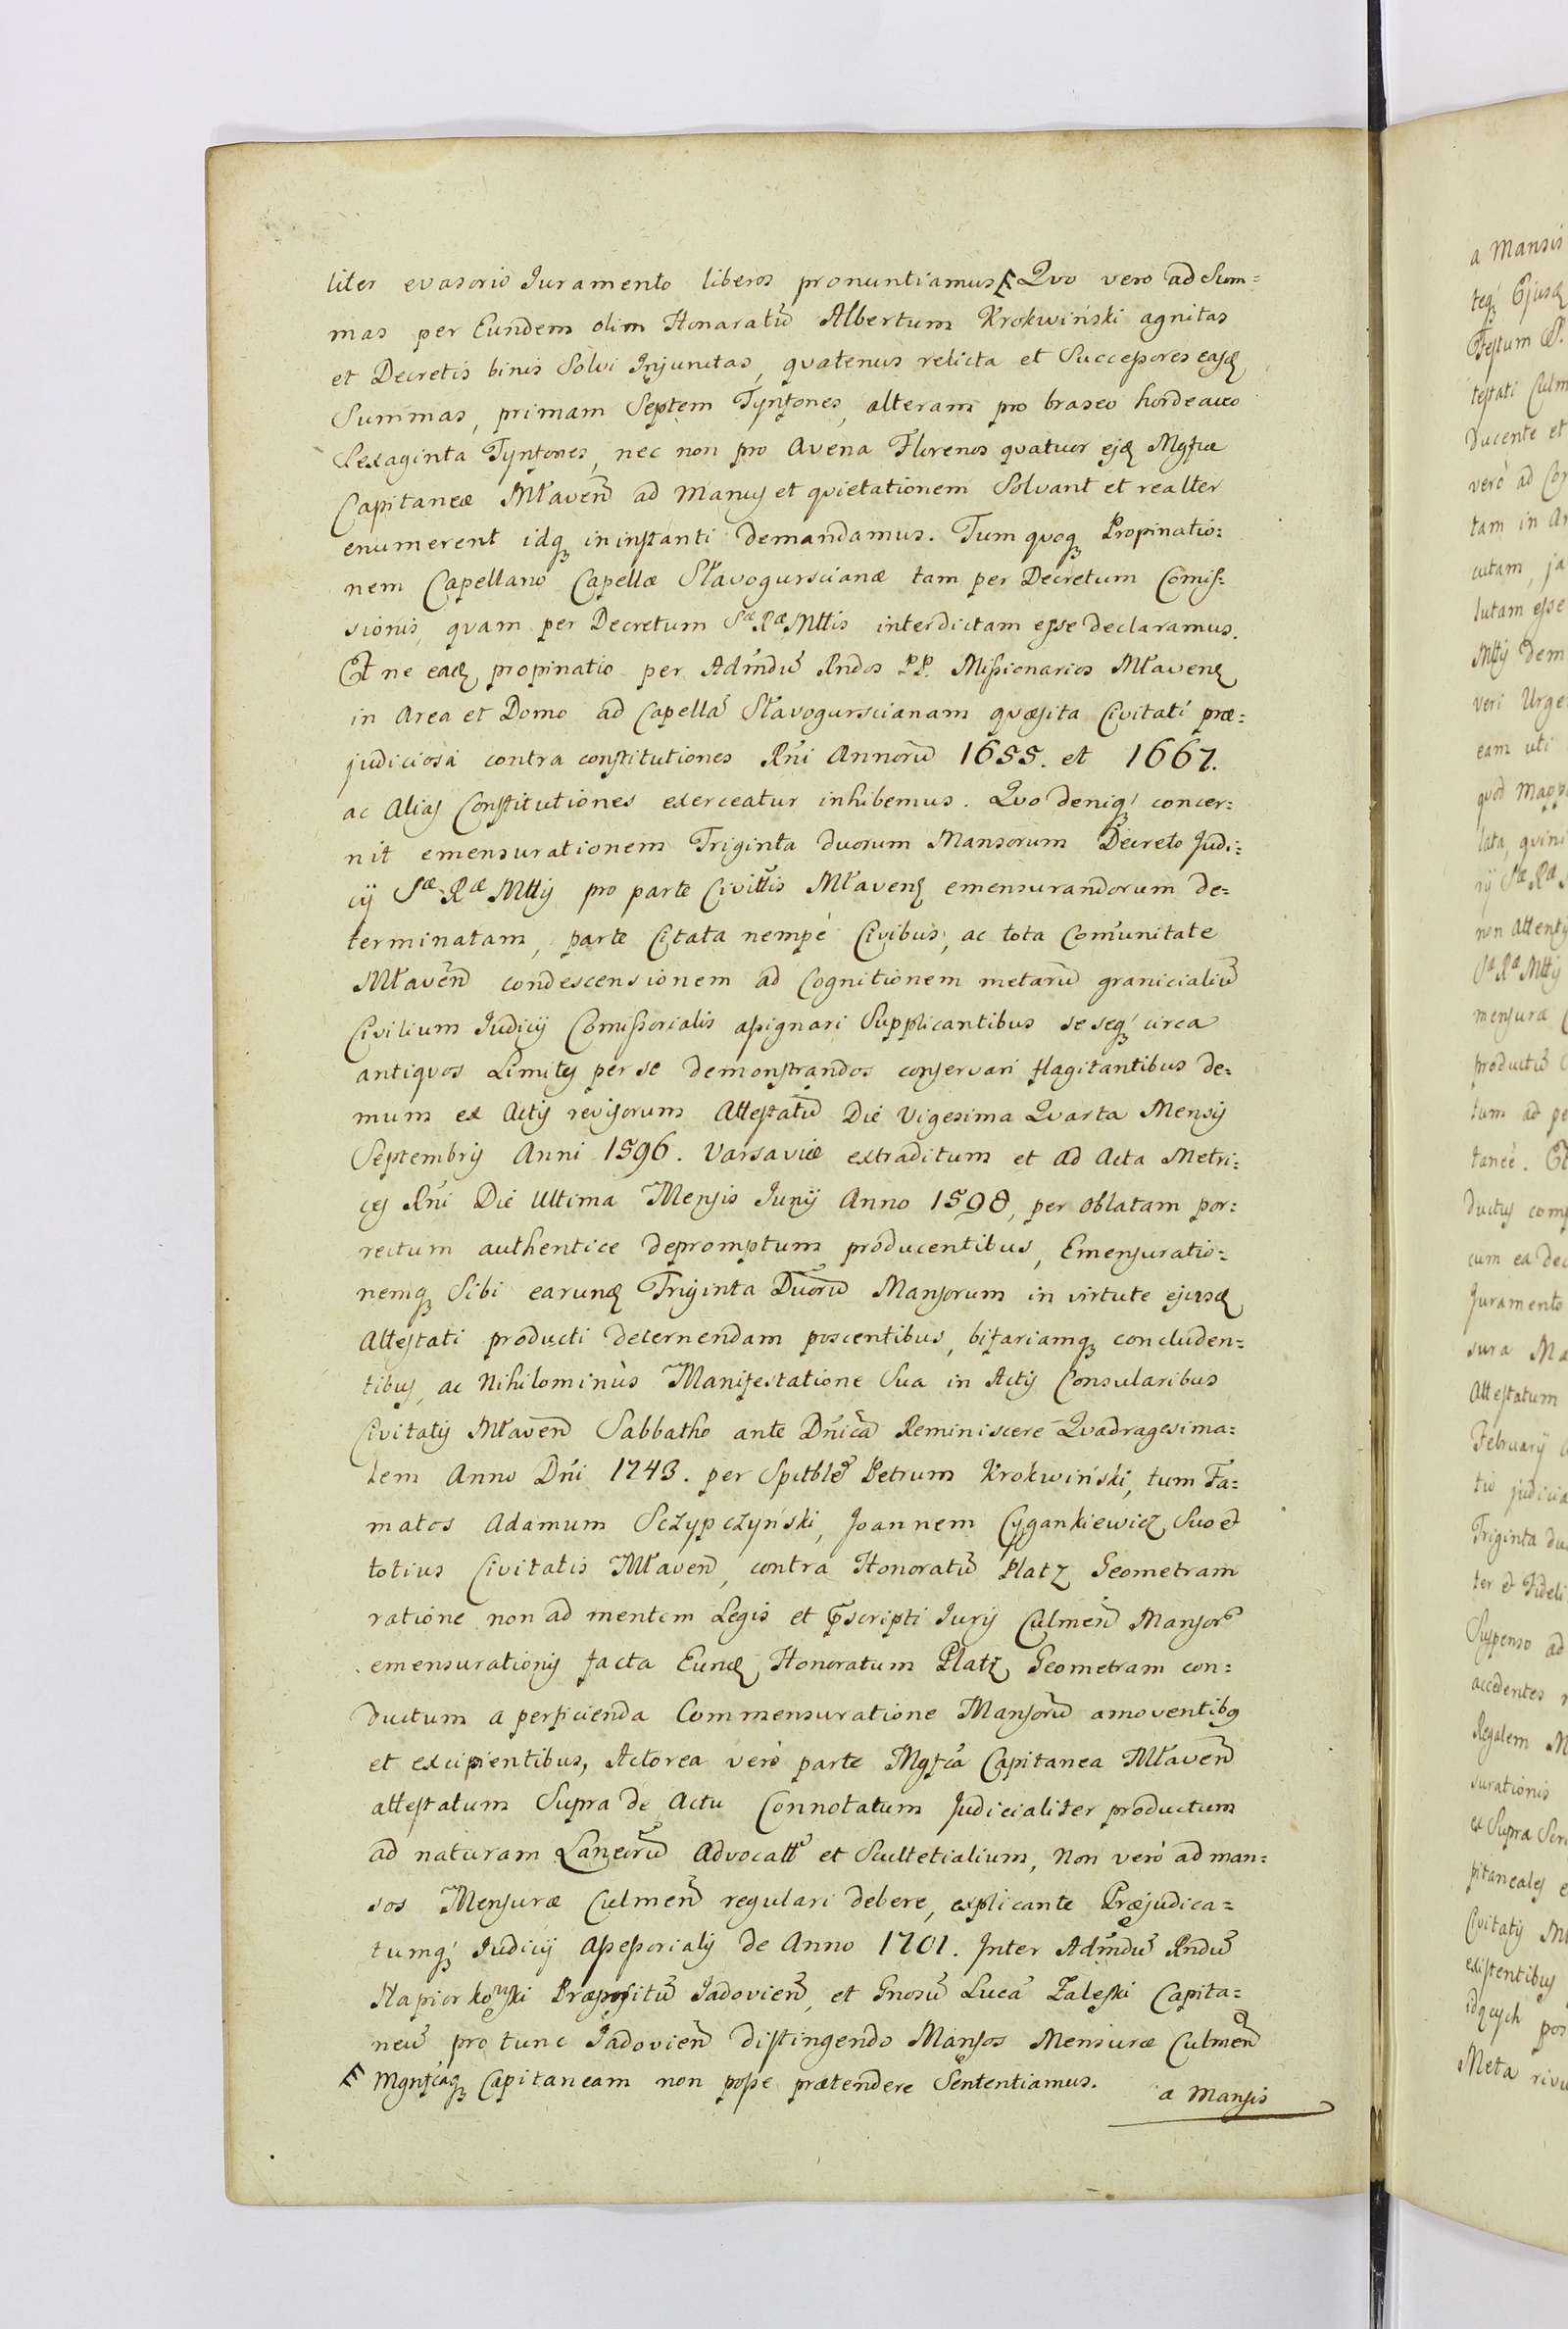 liter evasorio Juramento liberos pronuntiamus Quo vero ad Sum=
mas per Eundem olim Honaratū Albertum Krokwiński agnitas
et Decretis binis Solvi Injunctas, quatenus relicta et Successores easd
Summas, primam Septem Tynfones, alteram pro braseo hordeaceo
Sexaginta Tynfones, nec non pro Avena Florenos quatuor ejd Mgfcæ
Capitaneæ Mławen̄ ad Manus et quietationem Solvant et realter
enumerent idq in instanti demandamus. Tum quoq Propinatio=
nem Capellano Capellæ Sławogurscianæ tam per Decretum Comis=
sionis, quam per Decretum Sæ Ræ Mttis interdictam esse declaramus.
Et ne ead propinatio per Admdū Rndos PP. Missionarios Mławen
in Area et Domo ad Capellā Sławogurscianam quæsita Civitati præ=
judiciosa contra constitutiones Rni Annorū 1655. et 1667.
ac Alias Constitutiones exerceatur inhibemus. Quo deniq concer=
nit emensurationem Triginta duorum Mansorum Decreto Judi=
cij Sæ Ræ Mttis pro parte Civittis Mławen emensurandorum de=
terminatam, parte Citata nempe Civibus, ac tota Comunitate
Mławen̄ condescensionem ad Cognitionem metarū granicialiū
Civilium Judicij Comissorialis assignari Supplicantibus se seq circa
antiquos Limites per se demonstrandos conservari flagitantibus de=
mum ex Actis revisorum Attestatū Die Vigesima Quarta Mensis
Septembris Anni 1596. Varsaviæ extraditum et ad Acta Metri=
ces Rni Die Ultima Mensis Junij Anno 1598, per Oblatam por=
rectum authentice depromptum producentibus, Emensuratio=
nemq Sibi earund Triginta Duorū Mansorum in virtute ejusd
Attestati producti decernendam poscentibus, bifariamq concluden=
tibus, ac Nihilominus Manifestatione Sua in Actis Consularibus
Civitatis Mławen̄ Sabbatho ante Dnicā Reminiscere Quadragesima=
lem Anno Dni 1743. per Spctblē Petrum Krokwiński, tum Fa=
matos Adamum Sczypczyński, Joannem Cygankiewicz Suo et
totius Civitatis Mławen̄, contra Honoratū Platz Geometram
ratione non ad mentem Legis et Pscripti Juris Culmen̄ Mansor
emensurationis facta Eund Honoratum Platz Geometram con=
ductum a perficienda Commensuratione Mansorū amoventibq
et excipientibus, Actorea vero parte Mgfca Capitanea Mławen̄
attestatum Supra de Actu Connotatum Judicialiter productum
ad naturam Laneorū Advocatt et Scultetialium, Non vero ad man=
sos Mensuræ Culmen̄ regulari debere, explicante Præjudica=
tumq Judicij Assessorialis de Anno 1701. Inter Admdū Rndū
Napiorkowski Præpositū Jadovien̄, et Gnosū Lucā Zaleski Capita=
neū pro tunc Jadovien̄ distingendo Mansos Mensuræ Culmen̄
Mgnfcāq Capitaneam non posse prætendere Sententiamus.
a Mansis